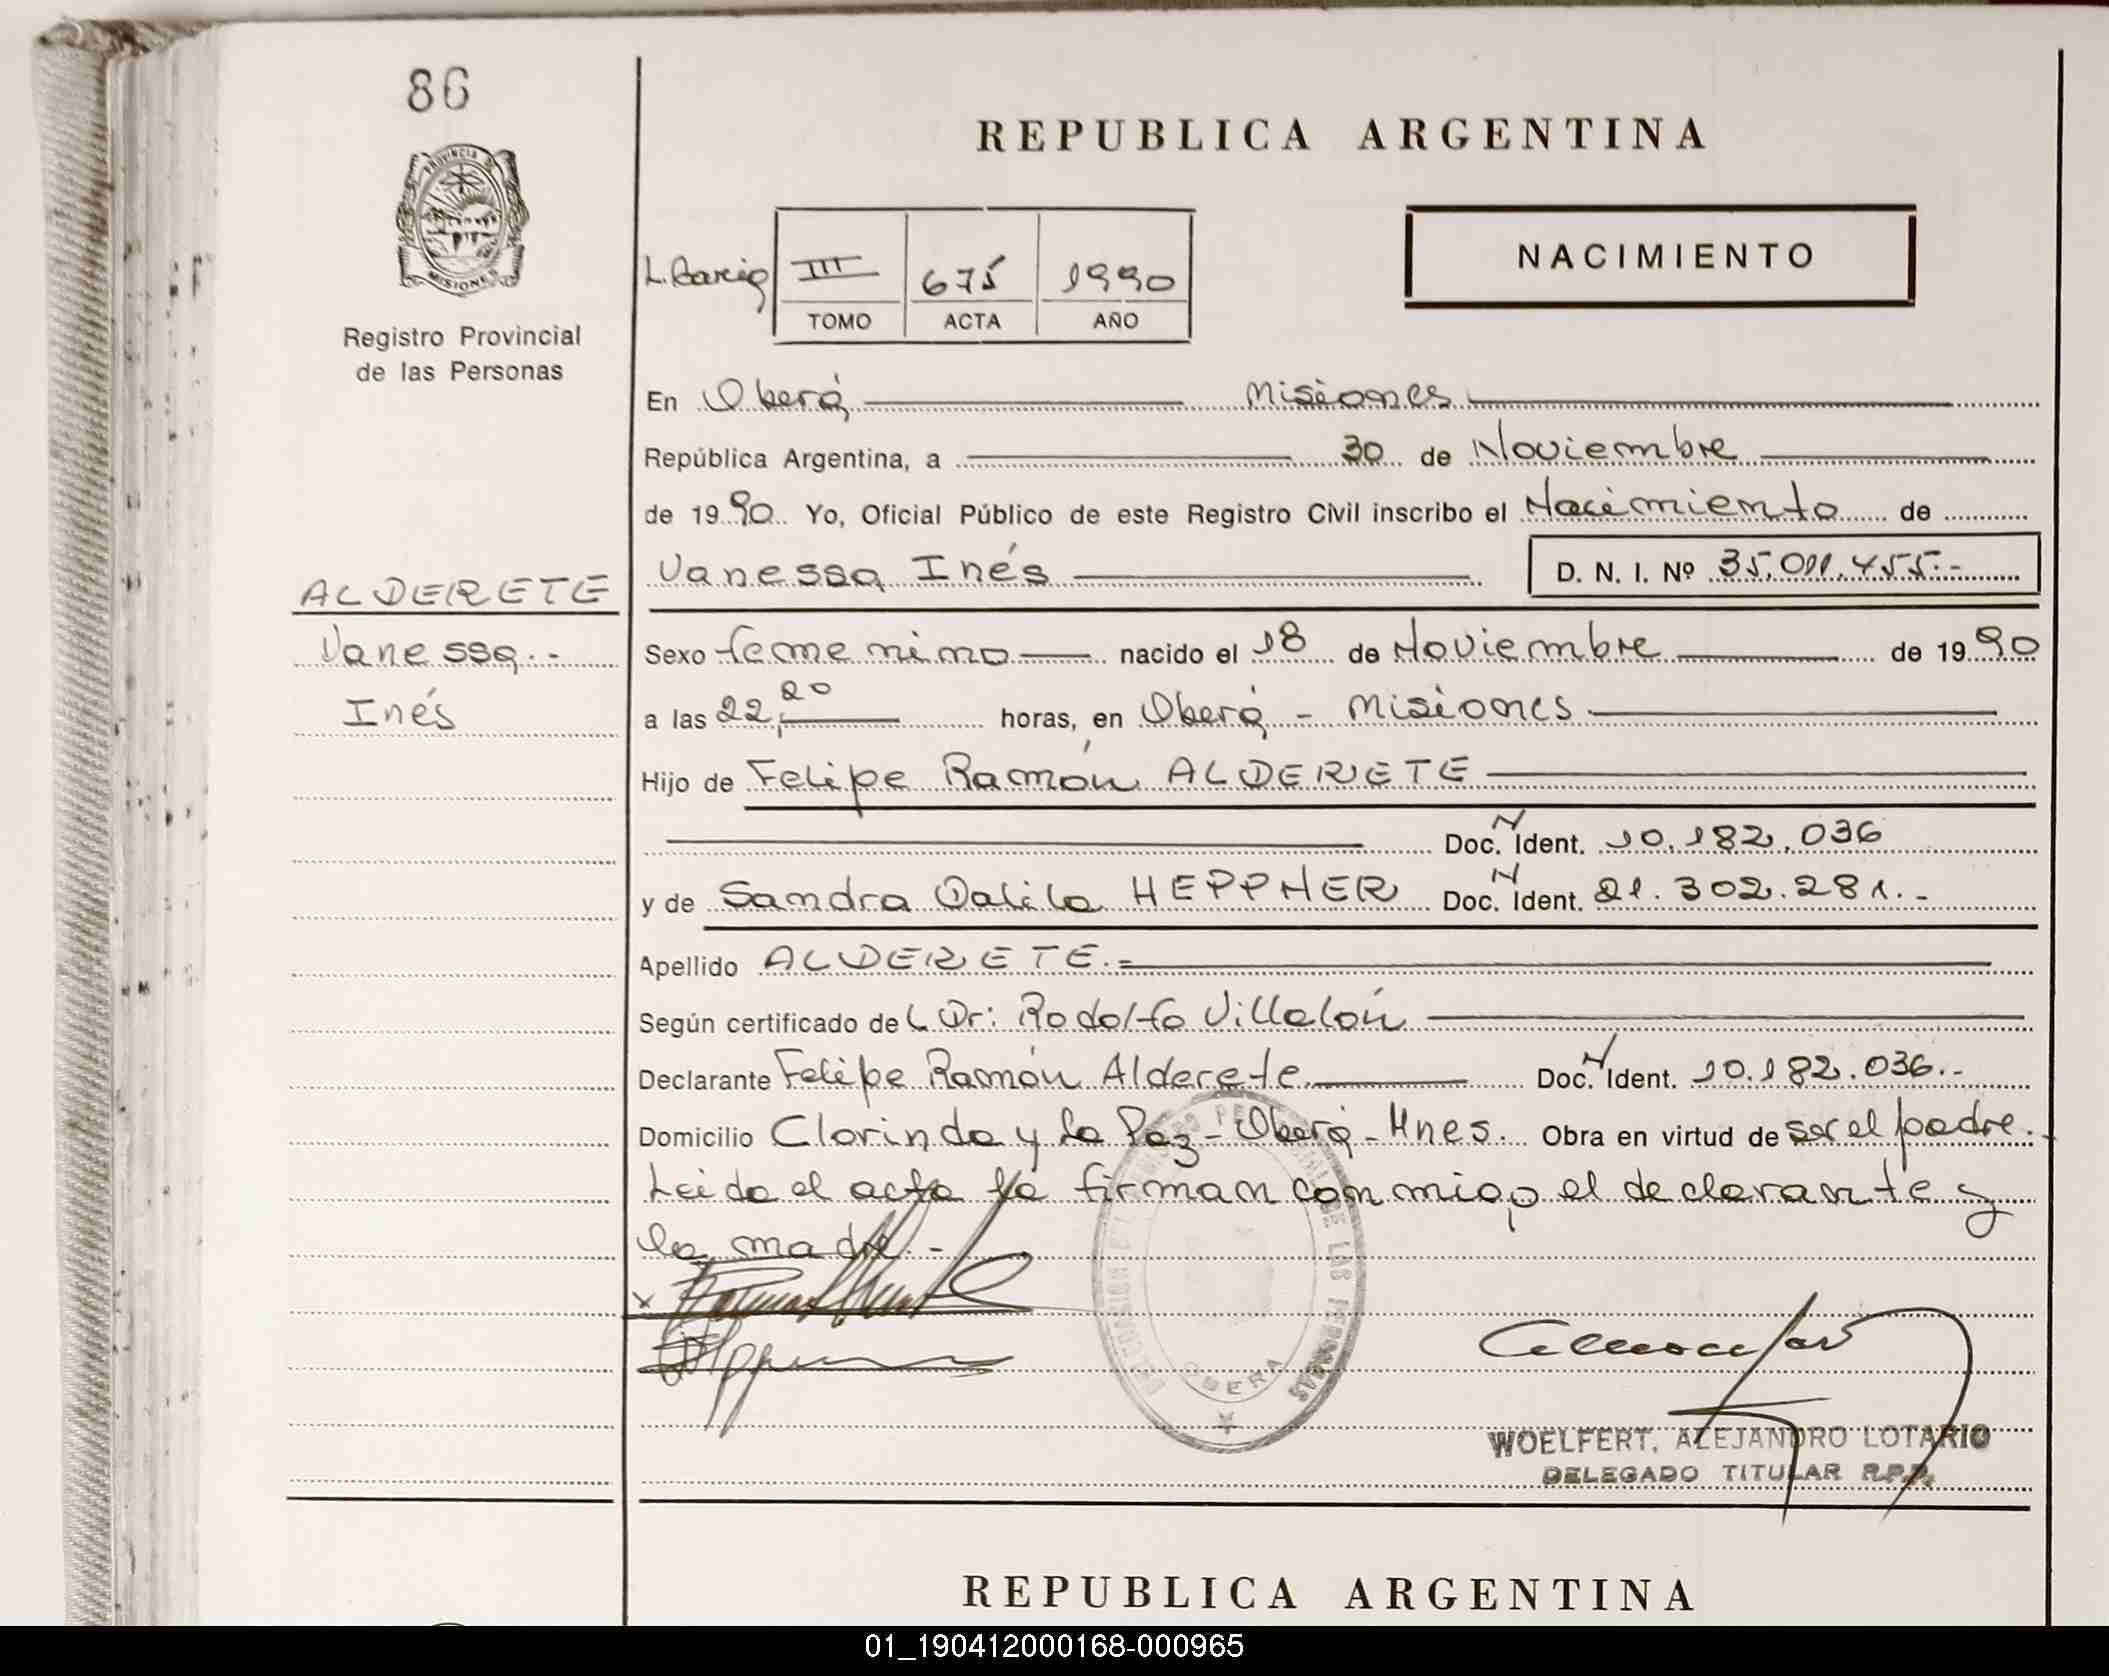 86
PROVINCIA DE
MISIONES
Registro Provincial
de las Personas
REPUBLICA ARGENTINA
NACIMIENTO
III 675 1990
TOMO ACTA AÑO
En Oberá Misiones
República Argentina, a 30 de Noviembre
de 1990 Yo, Oficial Público de este Registro Civil inscribo el Nacimiento de
Vanessa Inés D. N. I. Nº 35.011.455.-
ALDERETE
Vanessa.-
Inés
Sexo femenino nacido el 18 de Noviembre de 1990
a las 22,20 horas, en Oberá - Misiones
Hijo de Felipe Ramón ALDERETE
Doc. N Ident. 10.182.036
y de Sandra Dalila HEPPNER Doc. N Ident. 21.302.281.-
Apellido ALDERETE.=
Según certificado del Dr: Rodolfo Villalón
Declarante Felipe Ramón Alderete Doc. N Ident. 10.182.036.-
Domicilio Clorinda y la Paz - Oberá - Mnes. Obra en virtud de ser el padre.
Leida el acta la firman conmigo, el declarante y
la madre.-
OBERA
WOELFERT, ALEJANDRO LOTARIO
DELEGADO TITULAR R.P.P.
REPUBLICA ARGENTINA
01_190412000168-000965